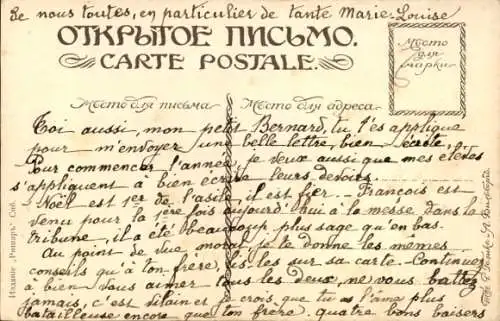 De nous toutes, en particulier de tante Marie-Louise
ОТКРЫТОЕ ПИСЬМО.
CARTE POSTALE.
Мѣсто
для
марки
Мѣсто для письма
Мѣсто для адреса
Toi aussi, mon petit Bernard, tu t'es appliqué
pour m'envoyer une belle lettre, bien écrite,
Pour commencer l'année, je veux aussi que mes élèves
s'appliquent à bien écrire leurs devoirs.
Noël est 1er de l'asile, il est fier. François est
venu pour la 1ère fois aujourd'hui à la messe dans la
tribune, il a été beaucoup plus sage qu'en bas.
Au point de vue moral je te donne les mêmes
conseils qu'à ton frère, lis-les sur sa carte. Continuez
à bien vous aimer tous les deux, ne vous battez
jamais, c'est vilain et je crois que tu as l'âme plus
batailleuse encore que ton frère, quatre bons baisers
Изданіе „Ришаръ" Спб.